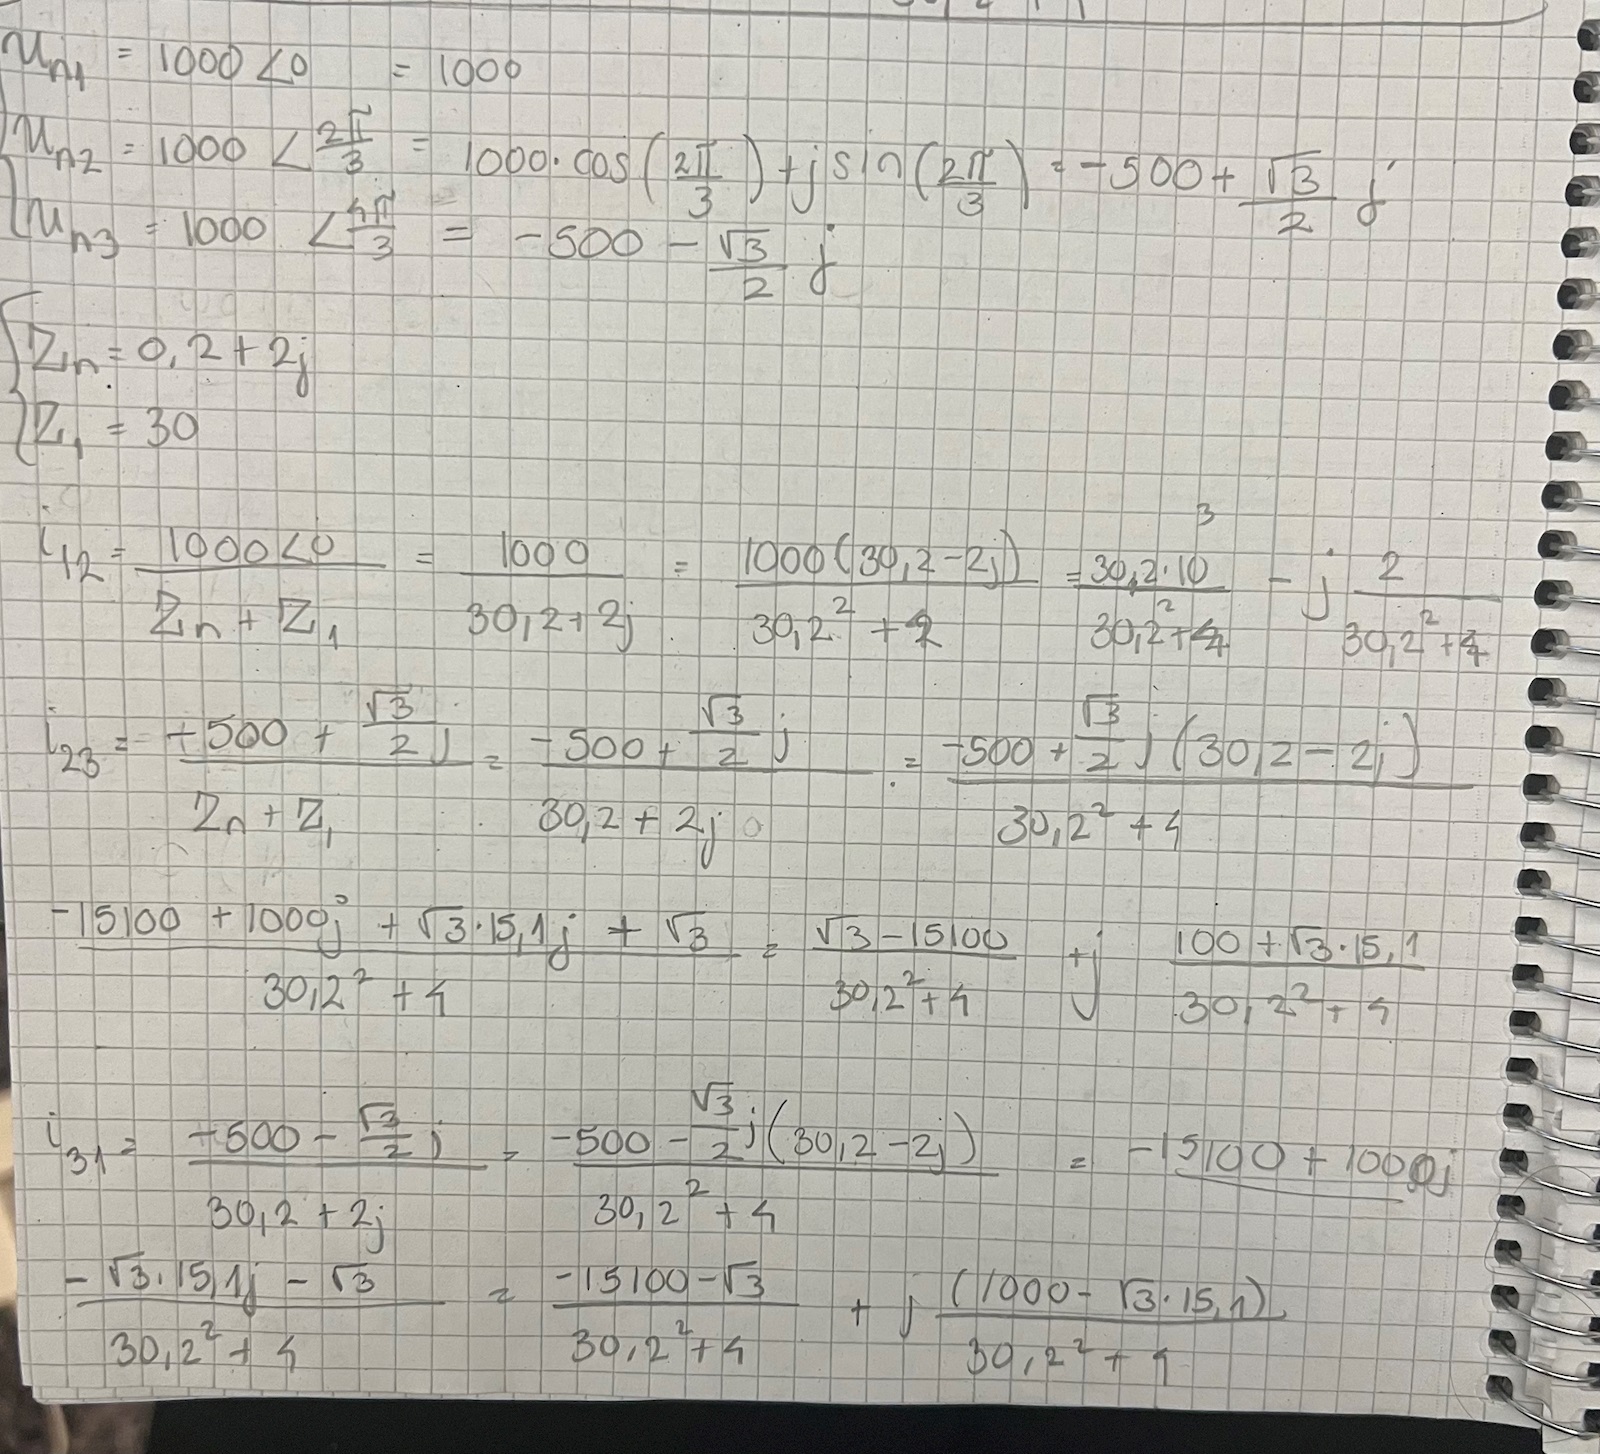 u_n1 = 1000 ∠0 = 1000
u_n2 = 1000 ∠ 2π/3 = 1000·cos(2π/3) + j sin(2π/3) = -500 + √3/2 j
u_n3 = 1000 ∠ 4π/3 = -500 - √3/2 j
Z_n = 0,2 + 2j
Z_1 = 30
i_12 = 1000∠0 / (Z_n + Z_1) = 1000 / (30,2 + 2j) = 1000(30,2 - 2j) / (30,2² + 4) = 30,2·10³ / (30,2² + 4) - j 2 / (30,2² + 4)
i_23 = (-500 + √3/2 j) / (Z_n + Z_1) = (-500 + √3/2 j) / (30,2 + 2j) = -500 + √3/2 j (30,2 - 2j) / (30,2² + 4)
(-15100 + 1000j + √3·15,1j + √3) / (30,2² + 4) = (√3 - 15100) / (30,2² + 4) + j (100 + √3·15,1) / (30,2² + 4)
i_31 = (-500 - √3/2 j) / (30,2 + 2j) = -500 - √3/2 j (30,2 - 2j) / (30,2² + 4) = -15100 + 1000j
(-√3·15,1j - √3) / (30,2² + 4) = (-15100 - √3) / (30,2² + 4) + j (1000 - √3·15,1) / (30,2² + 4)